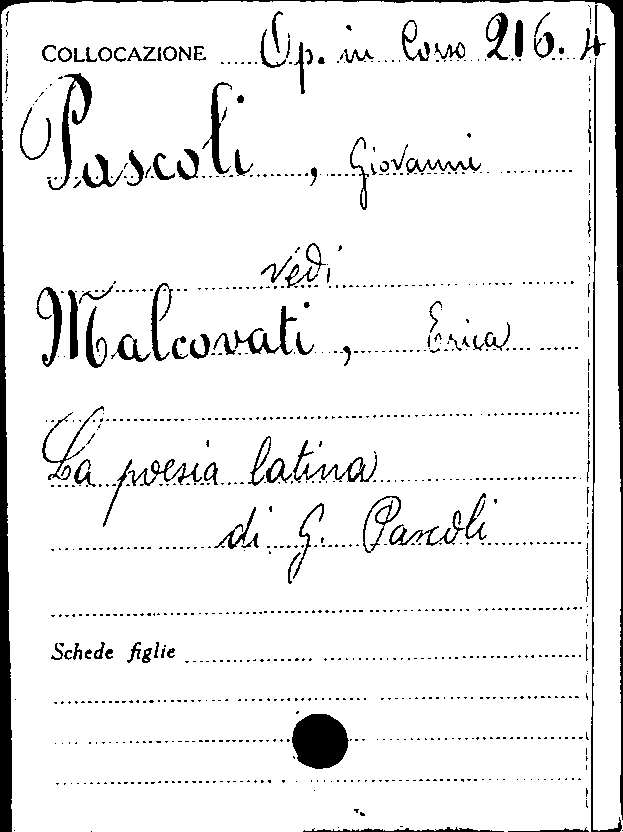 COLLOCAZIONE Op. in Corso 216. 4
Pascoli, Giovanni
vedi
Malcovati, Erica
La poesia latina
di G. Pascoli
Schede figlie